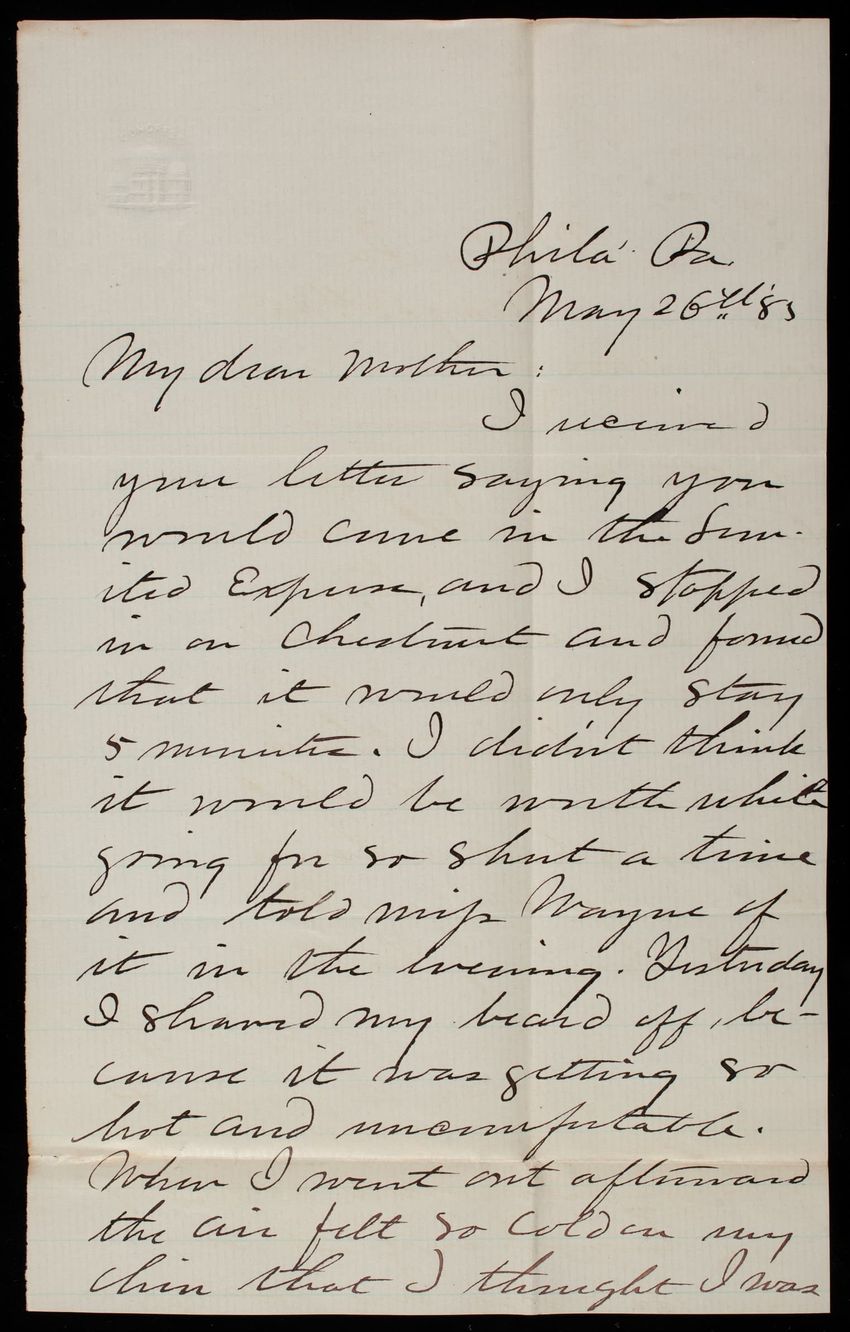 Phila' Pa.
May 26th '83
My dear Mother:
I received
your letter saying you
would come in the Lim-
ited Express, and I stopped
in on Chestnut and found
that it would only stay
5 minutes. I didn't think
it would be worth while
going for so short a time
and told miss Wayne of
it in the evening. Yesterday
I shaved my beard off, be-
cause it was getting so
hot and uncomfortable.
When I went out afterward
the air felt so cold on my
chin that I thought I was